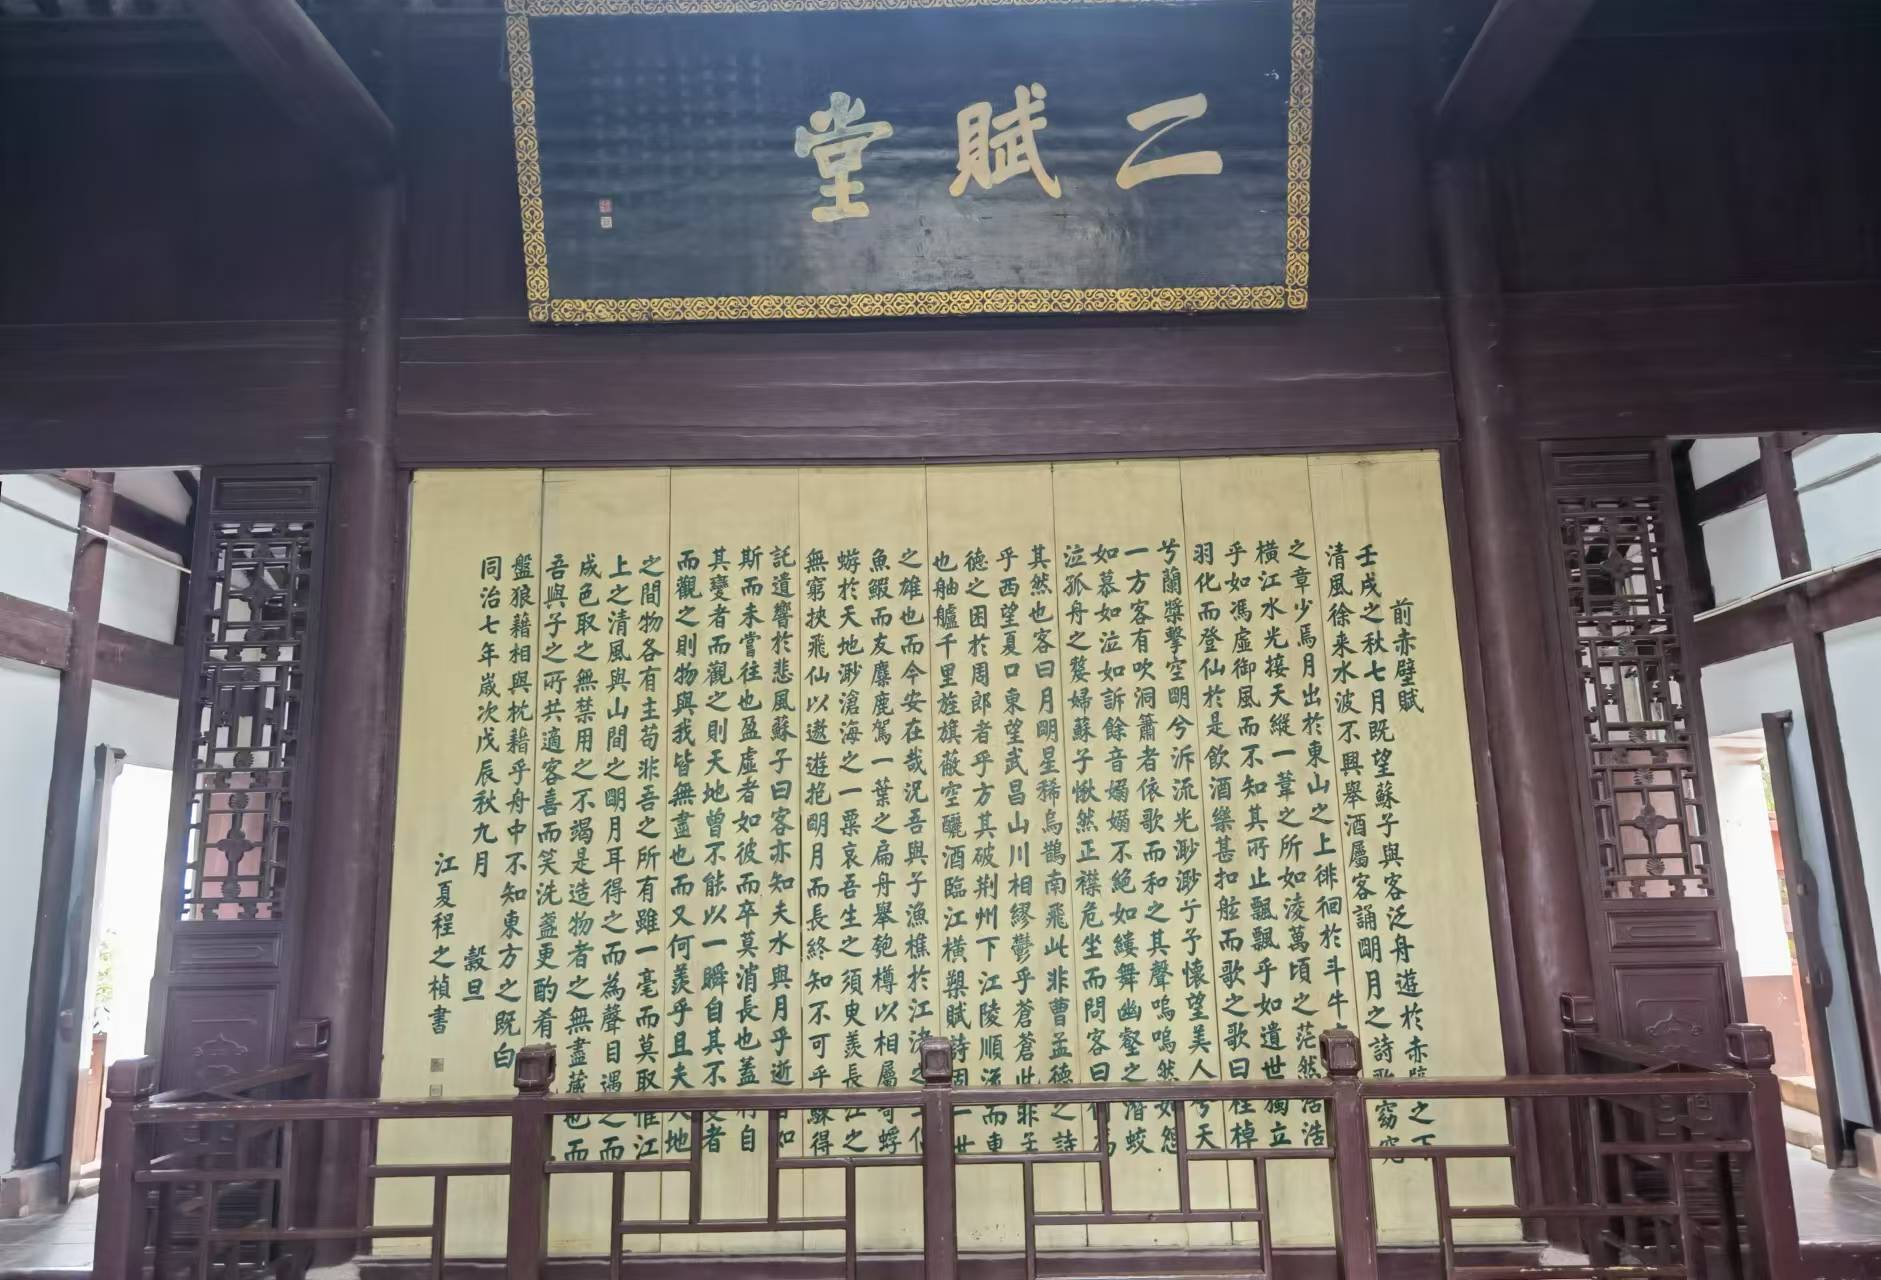 二賦堂
前赤壁賦
壬戌之秋七月既望蘇子與客泛舟遊於赤壁之下
清風徐来水波不興舉酒屬客誦明月之詩歌窈窕
之章少焉月出於東山之上徘徊於斗牛
橫江水光接天縱一葦之所如淩萬頃之茫然浩浩
乎如馮虛御風而不知其所止飄飄乎如遺世獨立
羽化而登仙於是飲酒樂甚扣舷而歌之歌曰桂棹
兮蘭槳擊空明兮泝流光渺渺兮予懷望美人兮天
一方客有吹洞簫者依歌而和之其聲嗚嗚然如怨
如慕如泣如訴餘音嫋嫋不絶如縷舞幽壑之潛蛟
泣孤舟之嫠婦蘇子愀然正襟危坐而問客曰何為
其然也客曰月明星稀烏鵲南飛此非曹孟德之詩
乎西望夏口東望武昌山川相繆鬱乎蒼蒼此非孟
德之困於周郎者乎方其破荊州下江陵順流而東
也舳艫千里旌旗蔽空釃酒臨江橫槊賦詩固一世
之雄也而今安在哉況吾與子漁樵於江渚之上侶
魚鰕而友麋鹿駕一葉之扁舟舉匏樽以相屬寄蜉
蝣於天地渺滄海之一粟哀吾生之須臾羨長江之
無窮挾飛仙以遨遊抱明月而長終知不可乎驟得
託遺響於悲風蘇子曰客亦知夫水與月乎逝者如
斯而未嘗往也盈虛者如彼而卒莫消長也蓋將自
其變者而觀之則天地曾不能以一瞬自其不變者
而觀之則物與我皆無盡也而又何羨乎且夫天地
之間物各有主苟非吾之所有雖一毫而莫取惟江
上之清風與山間之明月耳得之而為聲目遇之而
成色取之無禁用之不竭是造物者之無盡藏也而
吾與子之所共適客喜而笑洗盞更酌肴
盤狼藉相與枕藉乎舟中不知東方之既白
同治七年歲次戊辰秋九月 穀旦
江夏程之楨書